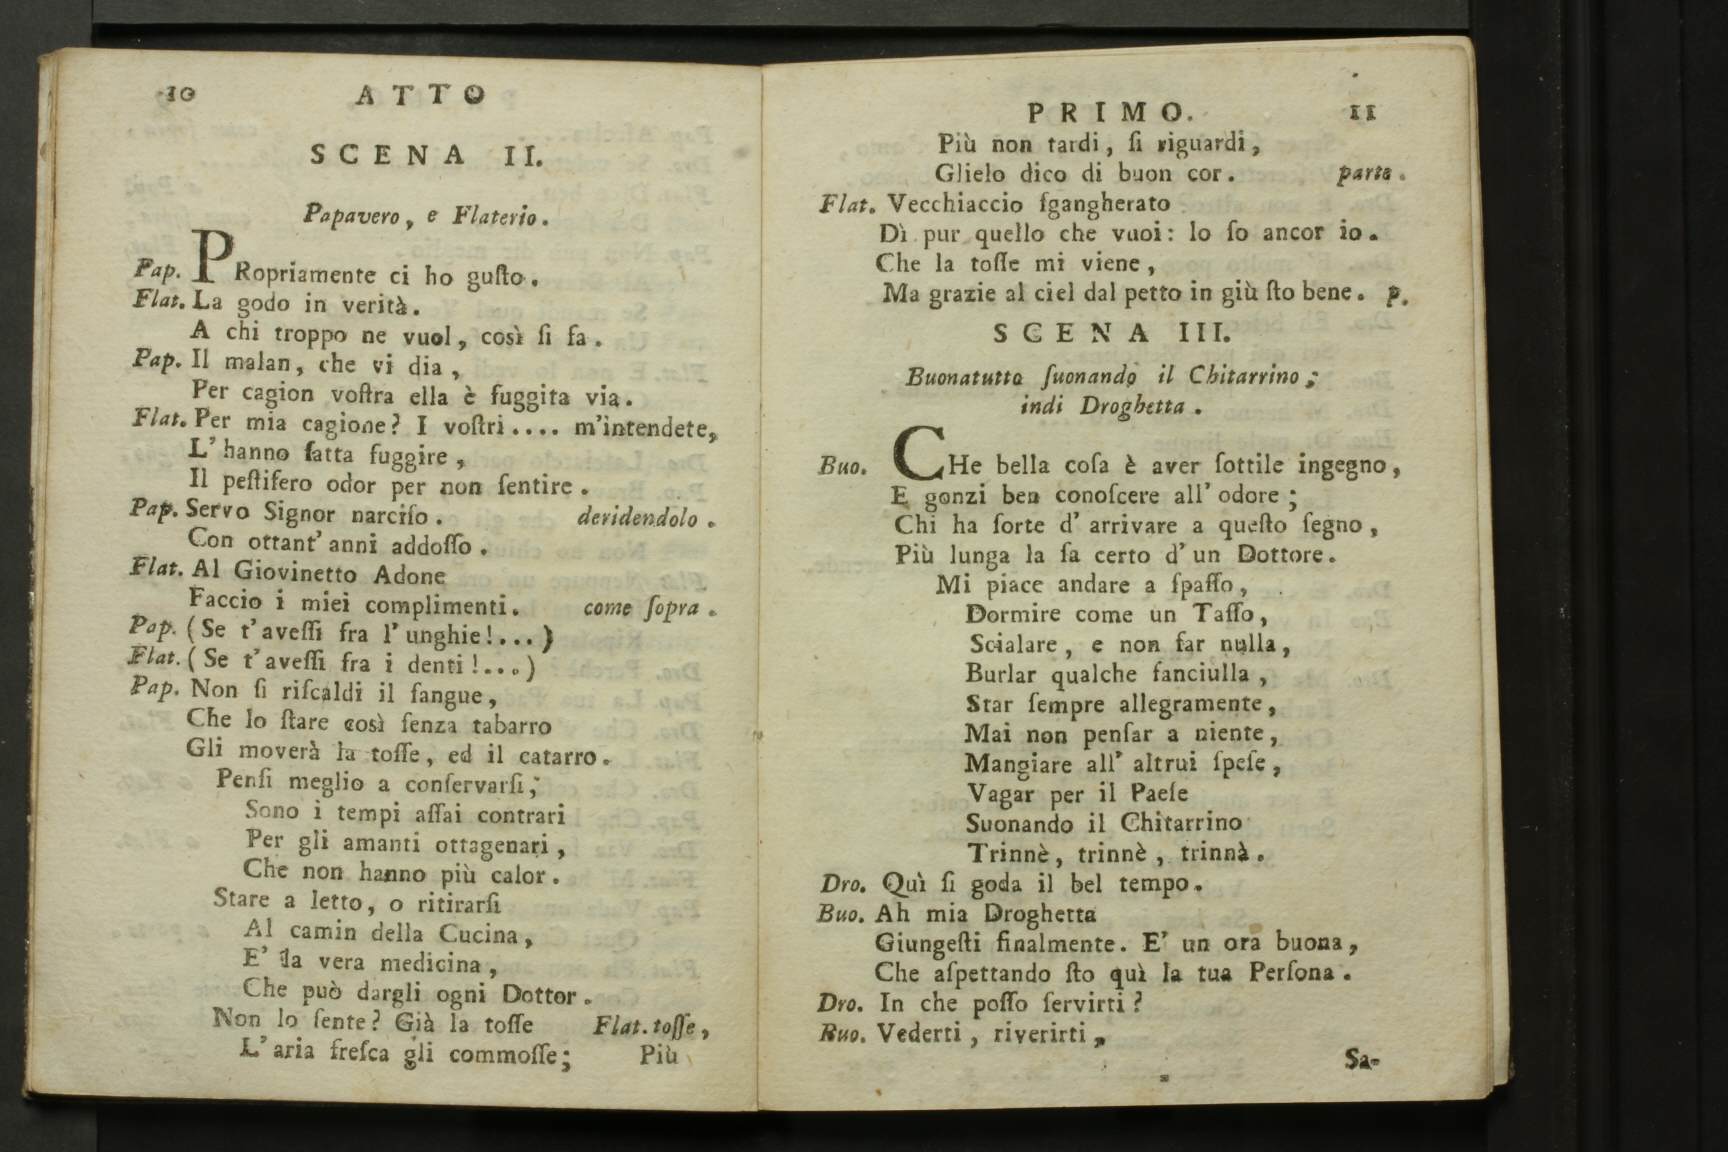 10 ATTO
SCENA II.
Papavero, e Flaterio.
Pap. PRopriamente ci ho guſto.
Flat. La godo in verità.
A chi troppo ne vuol, così ſi fa.
Pap. Il malan, che vi dia,
Per cagion voſtra ella è fuggita via.
Flat. Per mia cagione? I voſtri.... m'intendete,
L'hanno fatta fuggire,
Il peſtifero odor per non ſentire.
Pap. Servo Signor narciſo. deridendolo.
Con ottant'anni addoſſo.
Flat. Al Giovinetto Adone
Faccio i miei complimenti. come ſopra.
Pap. (Se t'aveſſi fra l'unghie!...)
Flat. (Se t'aveſſi fra i denti!...)
Pap. Non ſi riſcaldi il ſangue,
Che lo ſtare così ſenza tabarro
Gli moverà la toſſe, ed il catarro.
Penſi meglio a conſervarſi;
Sono i tempi aſſai contrari
Per gli amanti ottagenari,
Che non hanno più calor.
Stare a letto, o ritirarſi
Al camin della Cucina,
E' la vera medicina,
Che può dargli ogni Dottor.
Non lo ſente? Già la toſſe Flat. toſſe,
L'aria freſca gli commoſſe; Più
PRIMO. 11
Più non tardi, ſi riguardi,
Glielo dico di buon cor. parte.
Flat. Vecchiaccio ſgangherato
Dì pur quello che vuoi: lo ſo ancor io.
Che la toſſe mi viene,
Ma grazie al ciel dal petto in giù ſto bene. p.
SCENA III.
Buonatutto ſuonando il Chitarrino;
indi Droghetta.
Buo. CHe bella coſa è aver ſottile ingegno,
E gonzi ben conoſcere all'odore;
Chi ha ſorte d'arrivare a queſto ſegno,
Più lunga la ſa certo d'un Dottore.
Mi piace andare a ſpaſſo,
Dormire come un Taſſo,
Scialare, e non far nulla,
Burlar qualche fanciulla,
Star ſempre allegramente,
Mai non penſar a niente,
Mangiare all'altrui ſpeſe,
Vagar per il Paeſe
Suonando il Chitarrino
Trinnè, trinnè, trinnà.
Dro. Quì ſi goda il bel tempo.
Buo. Ah mia Droghetta
Giungeſti finalmente. E' un ora buona,
Che aſpettando ſto quì la tua Perſona.
Dro. In che poſſo ſervirti?
Buo. Vederti, riverirti,
Sa-